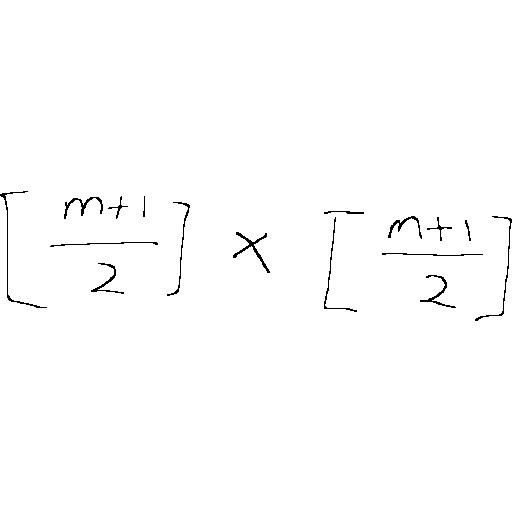 [ m+1 / 2 ] × [ m+1 / 2 ]